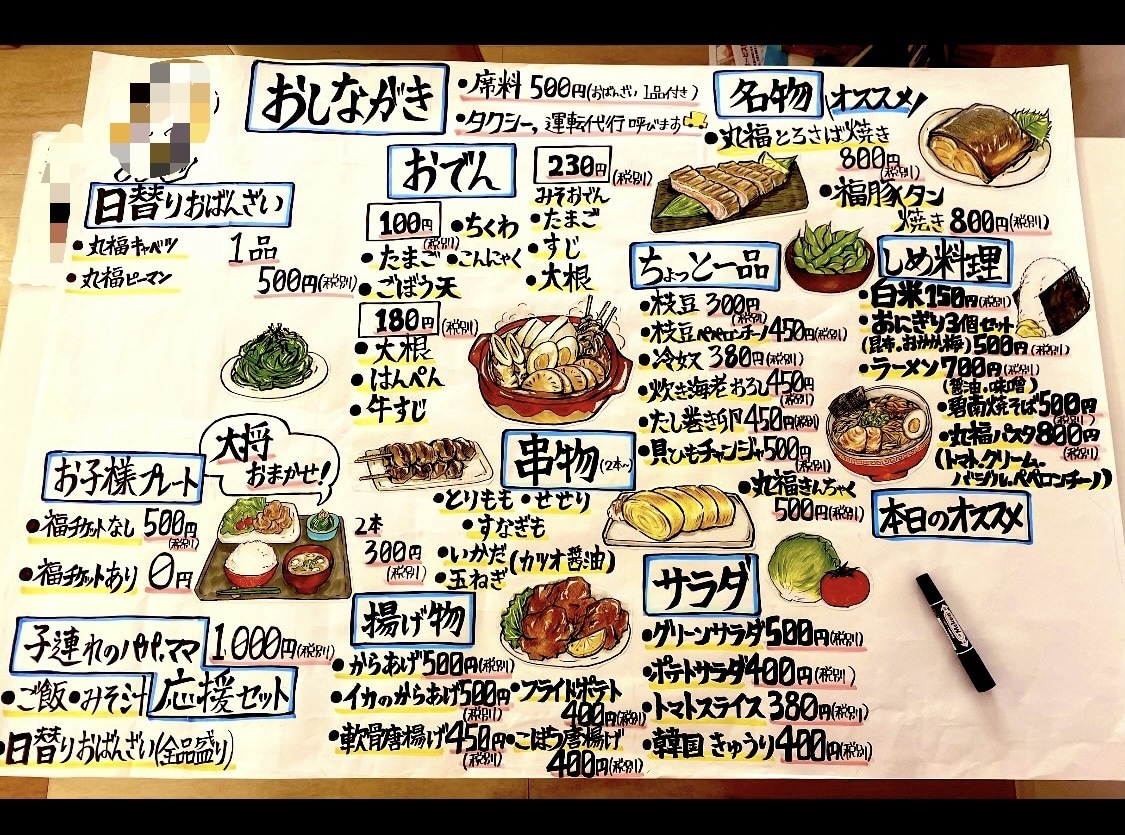 おしながき
・席料 500円(おばんざい 1品付き)
・タクシー、運転代行 呼びます
名物 オススメ!
・丸福とろさば焼き
800円(税別)
・福豚タン
焼き 800円(税別)
日替りおばんざい
・丸福キャベツ
・丸福ピーマン
1品
500円(税別)
おでん
100円(税別)
・ちくわ
・たまご ・こんにゃく
・ごぼう天
180円(税別)
・大根
・はんぺん
・牛すじ
230円(税別)
みそおでん
・たまご
・すじ
・大根
ちょっと一品
・枝豆 300円(税別)
・枝豆ペペロンチーノ450円(税別)
・冷奴 380円(税別)
・炊き海老おろし450円(税別)
・だし巻き卵450円(税別)
・貝ひもチャンジャ500円(税別)
・丸福きんちゃく
500円(税別)
しめ料理
・白米150円(税別)
・おにぎり3個セット
(昆布、おかか、梅)500円(税別)
・ラーメン700円(税別)
(醤油・味噌)
・碧南焼そば500円(税別)
・丸福パスタ800円(税別)
(トマト、クリーム、
バジル、ペペロンチーノ)
本日のオススメ
お子様プレート
大将
おまかせ!
・福チケットなし 500円(税別)
・福チケットあり 0円
串物(2本~)
・とりもも ・せせり
・すなぎも
・いかだ(カツオ醤油)
・玉ねぎ
2本
300円(税別)
子連れのパパ、ママ
応援セット
1,000円(税別)
・ご飯・みそ汁
・日替りおばんざい(全品盛り)
揚げ物
・からあげ500円(税別)
・イカのからあげ500円(税別)
・軟骨唐揚げ450円(税別)
・フライドポテト
400円(税別)
・ごぼう唐揚げ
400円(税別)
サラダ
・グリーンサラダ500円(税別)
・ポテトサラダ400円(税別)
・トマトスライス 380円(税別)
・韓国きゅうり400円(税別)